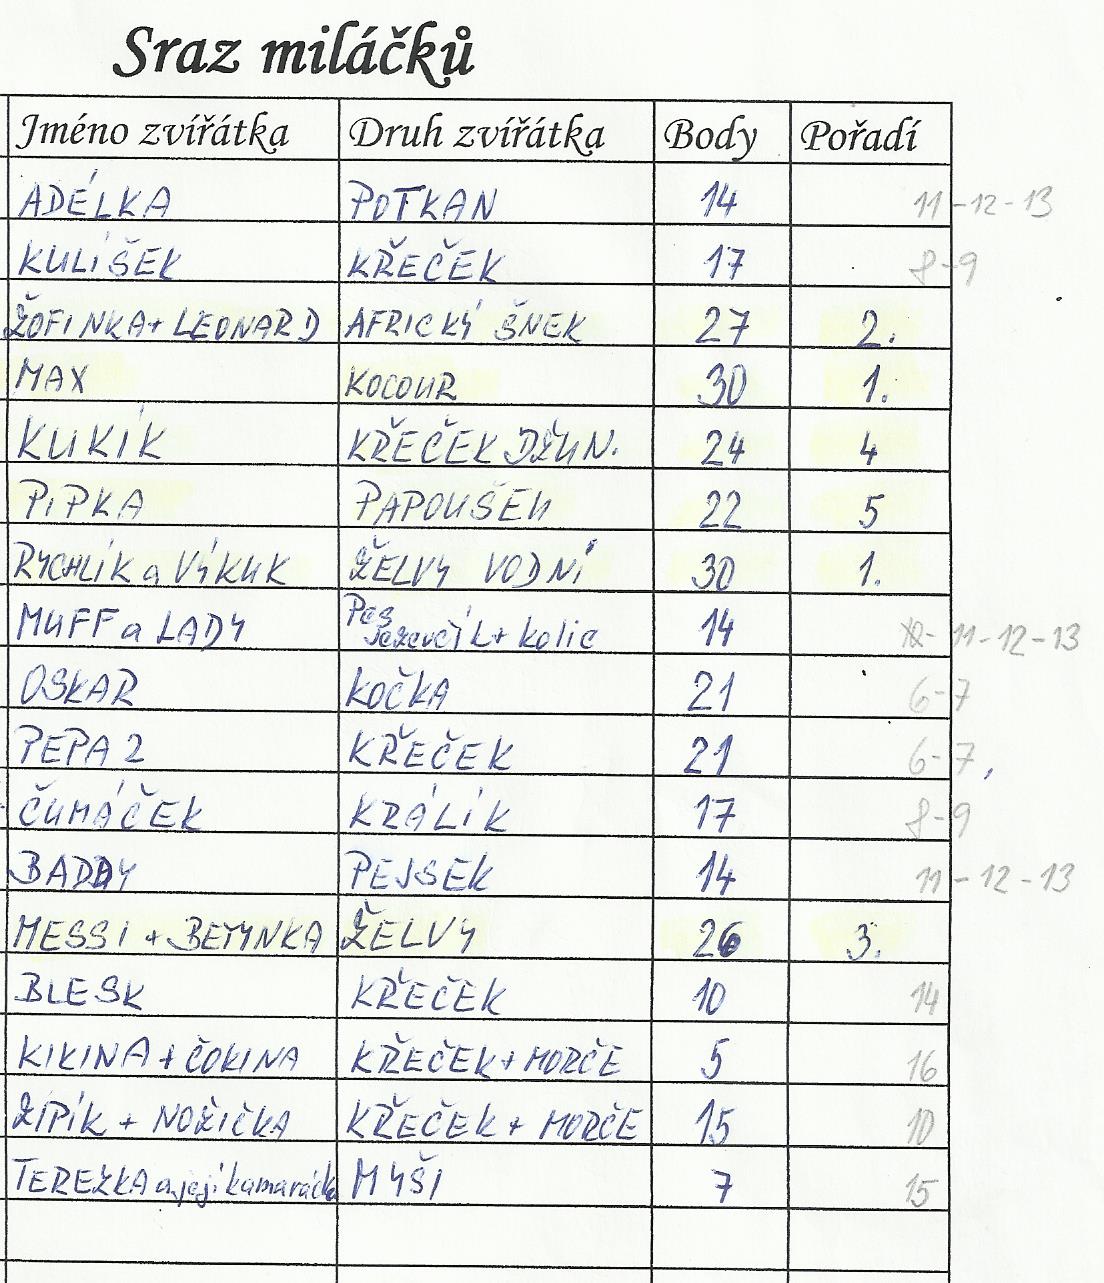 Sraz miláčků
Jméno zvířátka Druh zvířátka Body Pořadí
ADÉLKA POTKAN 14 11-12-13
KULÍŠEK KŘEČEK 17 8-9
ŽOFINKA+LEONARD AFRICKÝ ŠNEK 27 2.
MAX KOCOUR 30 1.
KUKÍK KŘEČEK DŽUN. 24 4
PIPKA PAPOUŠEK 22 5
RYCHLÍK a VÝKUK ŽELVY VODNÍ 30 1.
MUFF a LADY Pes jezevčík+kolie 14 11-12-13
OSKAR KOČKA 21 6-7
PEPA 2 KŘEČEK 21 6-7,
ČUMÁČEK KRÁLÍK 17 8-9
BADDY PEJSEK 14 11-12-13
MESSI + BETYNKA ŽELVY 26 3.
BLESK KŘEČEK 10 14
KIKINA+ČOKINA KŘEČEK+MORČE 5 16
ŽIPÍK + NOŽIČKA KŘEČEK + MORČE 15 10
TEREZKA a její MYŠI 7 15